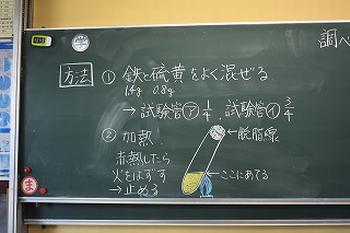 調べ
方法 ① 鉄と硫黄をよく混ぜる
1.4g 0.8g
→ 試験管㋐ 1/4, 試験管㋑ 3/4
② 加熱
赤熱したら
火をはずす
→ 止める
←脱脂綿
←ここにあてる
ま